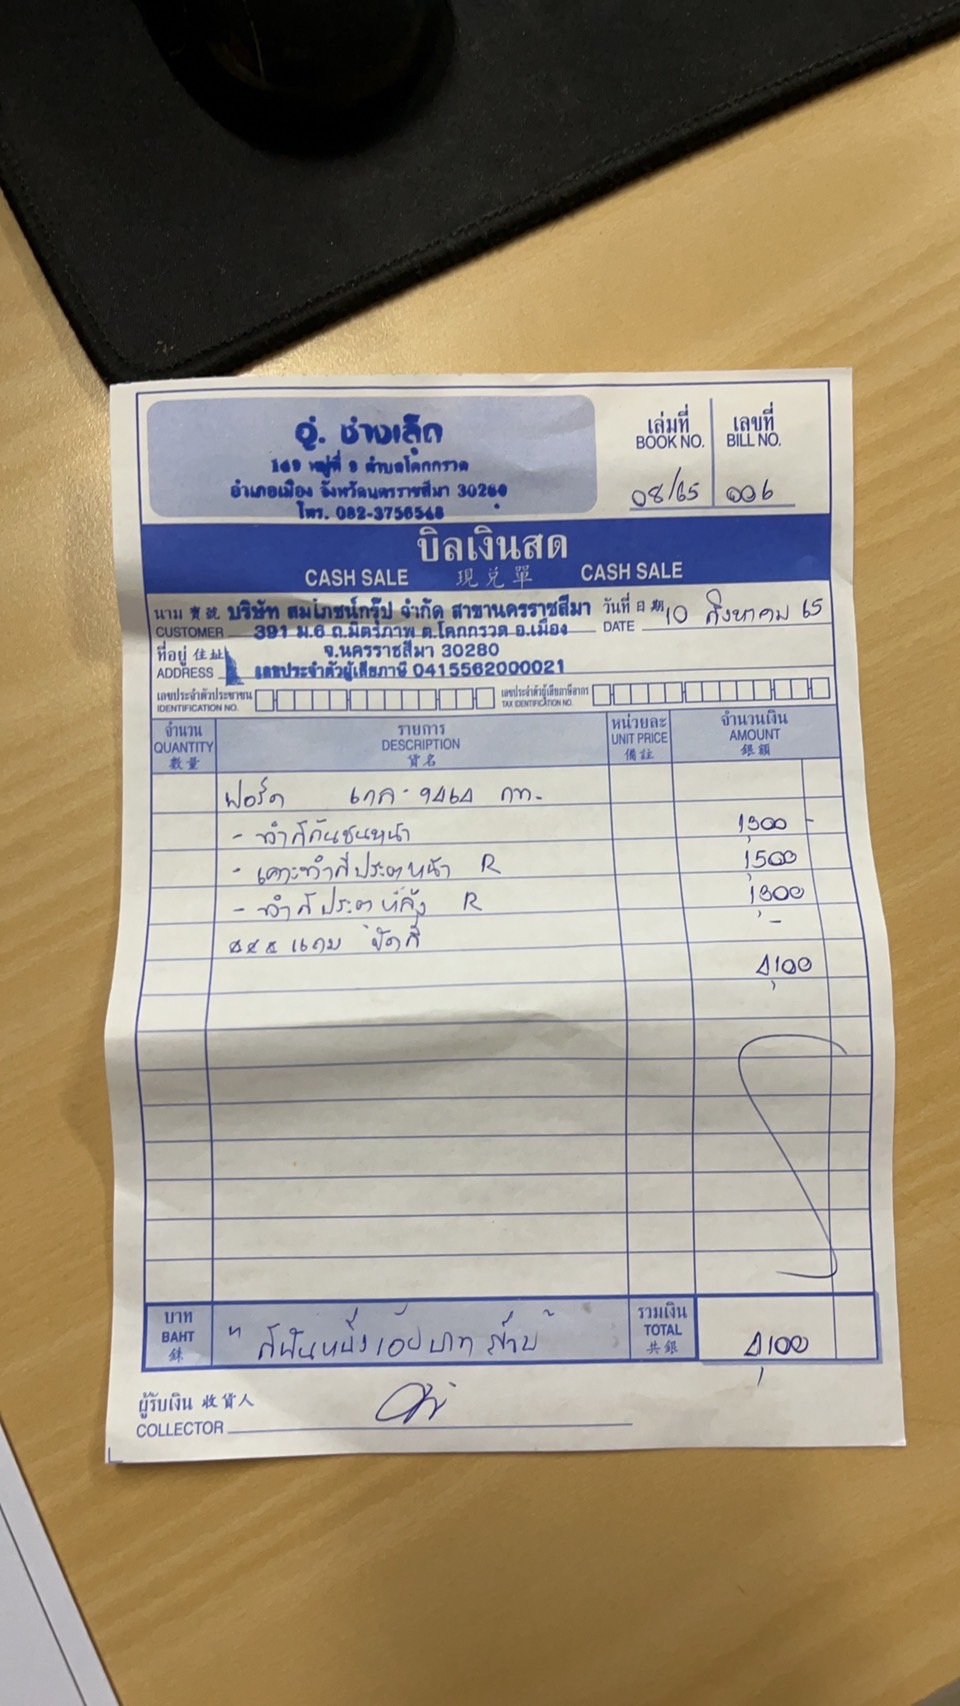 อู่. ช่างเล็ก
169 หมู่ที่ 9 ตำบลโคกกรวด
อำเภอเมือง จังหวัดนครราชสีมา 30280
โทร. 082-3756548
เล่มที่ เลขที่
BOOK NO. BILL NO.
08/65 006
บิลเงินสด
CASH SALE 現兌單 CASH SALE
นาม 寶號 บริษัท สมโภชน์กรุ๊ป จำกัด สาขานครราชสีมา วันที่ 日期 10 สิงหาคม 65
CUSTOMER 391 ม.6 ถ.มิตรภาพ ต.โคกกรวด อ.เมือง DATE
ที่อยู่ 住址 จ.นครราชสีมา 30280
ADDRESS เลขประจำตัวผู้เสียภาษี 0415562000021
เลขประจำตัวประชาชน เลขประจำตัวผู้เสียภาษีอากร
IDENTIFICATION NO. TAX IDENTIFICATION NO.
จำนวน รายการ หน่วยละ จำนวนเงิน
QUANTITY DESCRIPTION UNIT PRICE AMOUNT
數量 貨名 備註 銀額
ฟอร์ด 9464 กท.
- ทำสีกันชนหน้า 1,300 -
- เคาะทำสีประตูหน้า R 1,500
- ทำสีประตูหลัง R 1,300
แถม ขัดสี -
4,100
บาท รวมเงิน
BAHT " สี่พันหนึ่งร้อยบาทถ้วน " TOTAL 4,100
銖 共銀
ผู้รับเงิน 收貨人
COLLECTOR